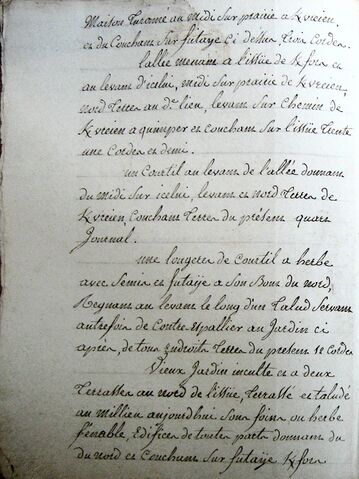 Maison Turamé au midi sur prairie a Kvreien
et du Couchant Sur futaye Ci dessus Trois Cordes.
Lallee menant a l'issüe de K fors et
au levant d'icelui, midi sur prairie de Kvreien,
nord Terres au d. lieu, levant sur Chemin de
Kvreien a quimper et Couchant Sur l'issüe Trente
une Cordes et demi.
un Courtil au levant de l'allée donnant
du midi sur icelui, levant et nord Terres de
Kvreien, Couchant Terres du présent quart
Journal.
une longeres de Courtil a herbe
avec Semis et futaye a Son Bout du nord,
Regnant au levant le long d'un Talud Servant
autrefois de Contre-Espallier au Jardin ci
après, de tous Endroits Terres du present 12 Cordes
Vieux Jardin inculte et a deux
Terrasses au nord de l'issüe, Terrassé et taludé
au millieu aujourdhui Sous foin ou herbe
fenable, Edifices de toutes parts donnant du
du nord et Couchant Sur futaye K fors